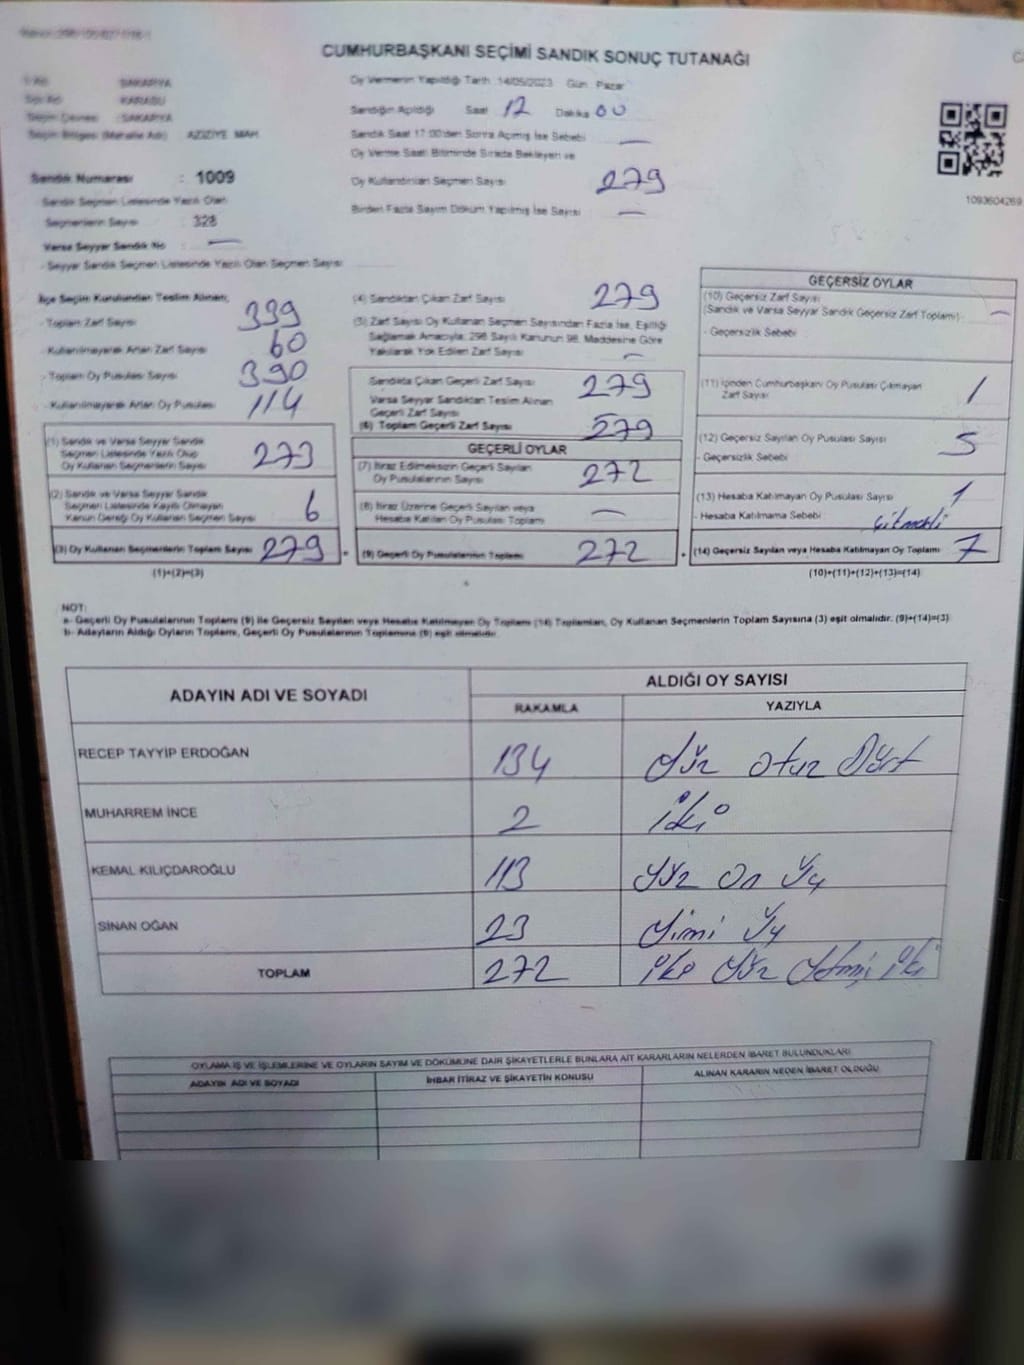 CUMHURBAŞKANI SEÇİMİ SANDIK SONUÇ TUTANAĞI
İl Adı : SAKARYA
İlçe Adı : KARASU
Seçim Çevresi : SAKARYA
Seçim Bölgesi (Mahalle Adı) : AZİZİYE MAH.
Sandık Numarası : 1009
Sandık Seçmen Listesinde Yazılı Olan
Seçmenlerin Sayısı : 328
Varsa Seyyar Sandık No : —
- Seyyar Sandık Seçmen Listesinde Yazılı Olan Seçmen Sayısı
Oy Vermenin Yapıldığı Tarih : 14/05/2023 Gün : Pazar
Sandığın Açıldığı Saat 12 Dakika 00
Sandık Saat 17:00'den Sonra Açılmış İse Sebebi —
Oy Verme Saati Bitiminde Sırada Bekleyen ve
Oy Kullandırılan Seçmen Sayısı 279
Birden Fazla Sayım Döküm Yapılmış İse Sayısı —
1093604269
İlçe Seçim Kurulundan Teslim Alınan;
- Toplam Zarf Sayısı 339
- Kullanılmayarak Artan Zarf Sayısı 60
- Toplam Oy Pusulası Sayısı 390
- Kullanılmayarak Artan Oy Pusulası 114
(1) Sandık ve Varsa Seyyar Sandık
Seçmen Listesinde Yazılı Olup
Oy Kullanan Seçmenlerin Sayısı 273
(2) Sandık ve Varsa Seyyar Sandık
Seçmen Listesinde Kayıtlı Olmayan
Kanun Gereği Oy Kullanan Seçmen Sayısı 6
(3) Oy Kullanan Seçmenlerin Toplam Sayısı 279
(1)+(2)=(3)
(4) Sandıktan Çıkan Zarf Sayısı 279
(5) Zarf Sayısı Oy Kullanan Seçmen Sayısından Fazla İse, Eşitliği
Sağlamak Amacıyla; 298 Sayılı Kanunun 98. Maddesine Göre
Yakılarak Yok Edilen Zarf Sayısı —
Sandıkta Çıkan Geçerli Zarf Sayısı 279
Varsa Seyyar Sandıktan Teslim Alınan
Geçerli Zarf Sayısı
(6) Toplam Geçerli Zarf Sayısı 279
GEÇERLİ OYLAR
(7) İtiraz Edilmeksizin Geçerli Sayılan
Oy Pusulalarının Sayısı 272
(8) İtiraz Üzerine Geçerli Sayılan veya
Hesaba Katılan Oy Pusulası Toplamı —
(9) Geçerli Oy Pusulalarının Toplamı 272
GEÇERSİZ OYLAR
(10) Geçersiz Zarf Sayısı
(Sandık ve Varsa Seyyar Sandık Geçersiz Zarf Toplamı) —
- Geçersizlik Sebebi
(11) İçinden Cumhurbaşkanı Oy Pusulası Çıkmayan
Zarf Sayısı 1
(12) Geçersiz Sayılan Oy Pusulası Sayısı 5
- Geçersizlik Sebebi
(13) Hesaba Katılmayan Oy Pusulası Sayısı 1
- Hesaba Katılmama Sebebi
(14) Geçersiz Sayılan veya Hesaba Katılmayan Oy Toplamı 7
(10)+(11)+(12)+(13)=(14)
NOT:
a- Geçerli Oy Pusulalarının Toplamı (9) ile Geçersiz Sayılan veya Hesaba Katılmayan Oy Toplamı (14) Toplamları, Oy Kullanan Seçmenlerin Toplam Sayısına (3) eşit olmalıdır. (9)+(14)=(3)
b- Adayların Aldığı Oyların Toplamı, Geçerli Oy Pusulalarının Toplamına (9) eşit olmalıdır.
ADAYIN ADI VE SOYADI ALDIĞI OY SAYISI
RAKAMLA YAZIYLA
RECEP TAYYİP ERDOĞAN 134 Yüz otuz Dört
MUHARREM İNCE 2 iki
KEMAL KILIÇDAROĞLU 113 Yüz on üç
SİNAN OĞAN 23 Yirmi üç
TOPLAM 272 iki Yüz Yetmiş iki
OYLAMA İŞ VE İŞLEMLERİNE VE OYLARIN SAYIM VE DÖKÜMÜNE DAİR ŞİKAYETLERLE BUNLARA AİT KARARLARIN NELERDEN İBARET BULUNDUKLARI
ADAYIN ADI VE SOYADI İHBAR İTİRAZ VE ŞİKAYETİN KONUSU ALINAN KARARIN NEDEN İBARET OLDUĞU